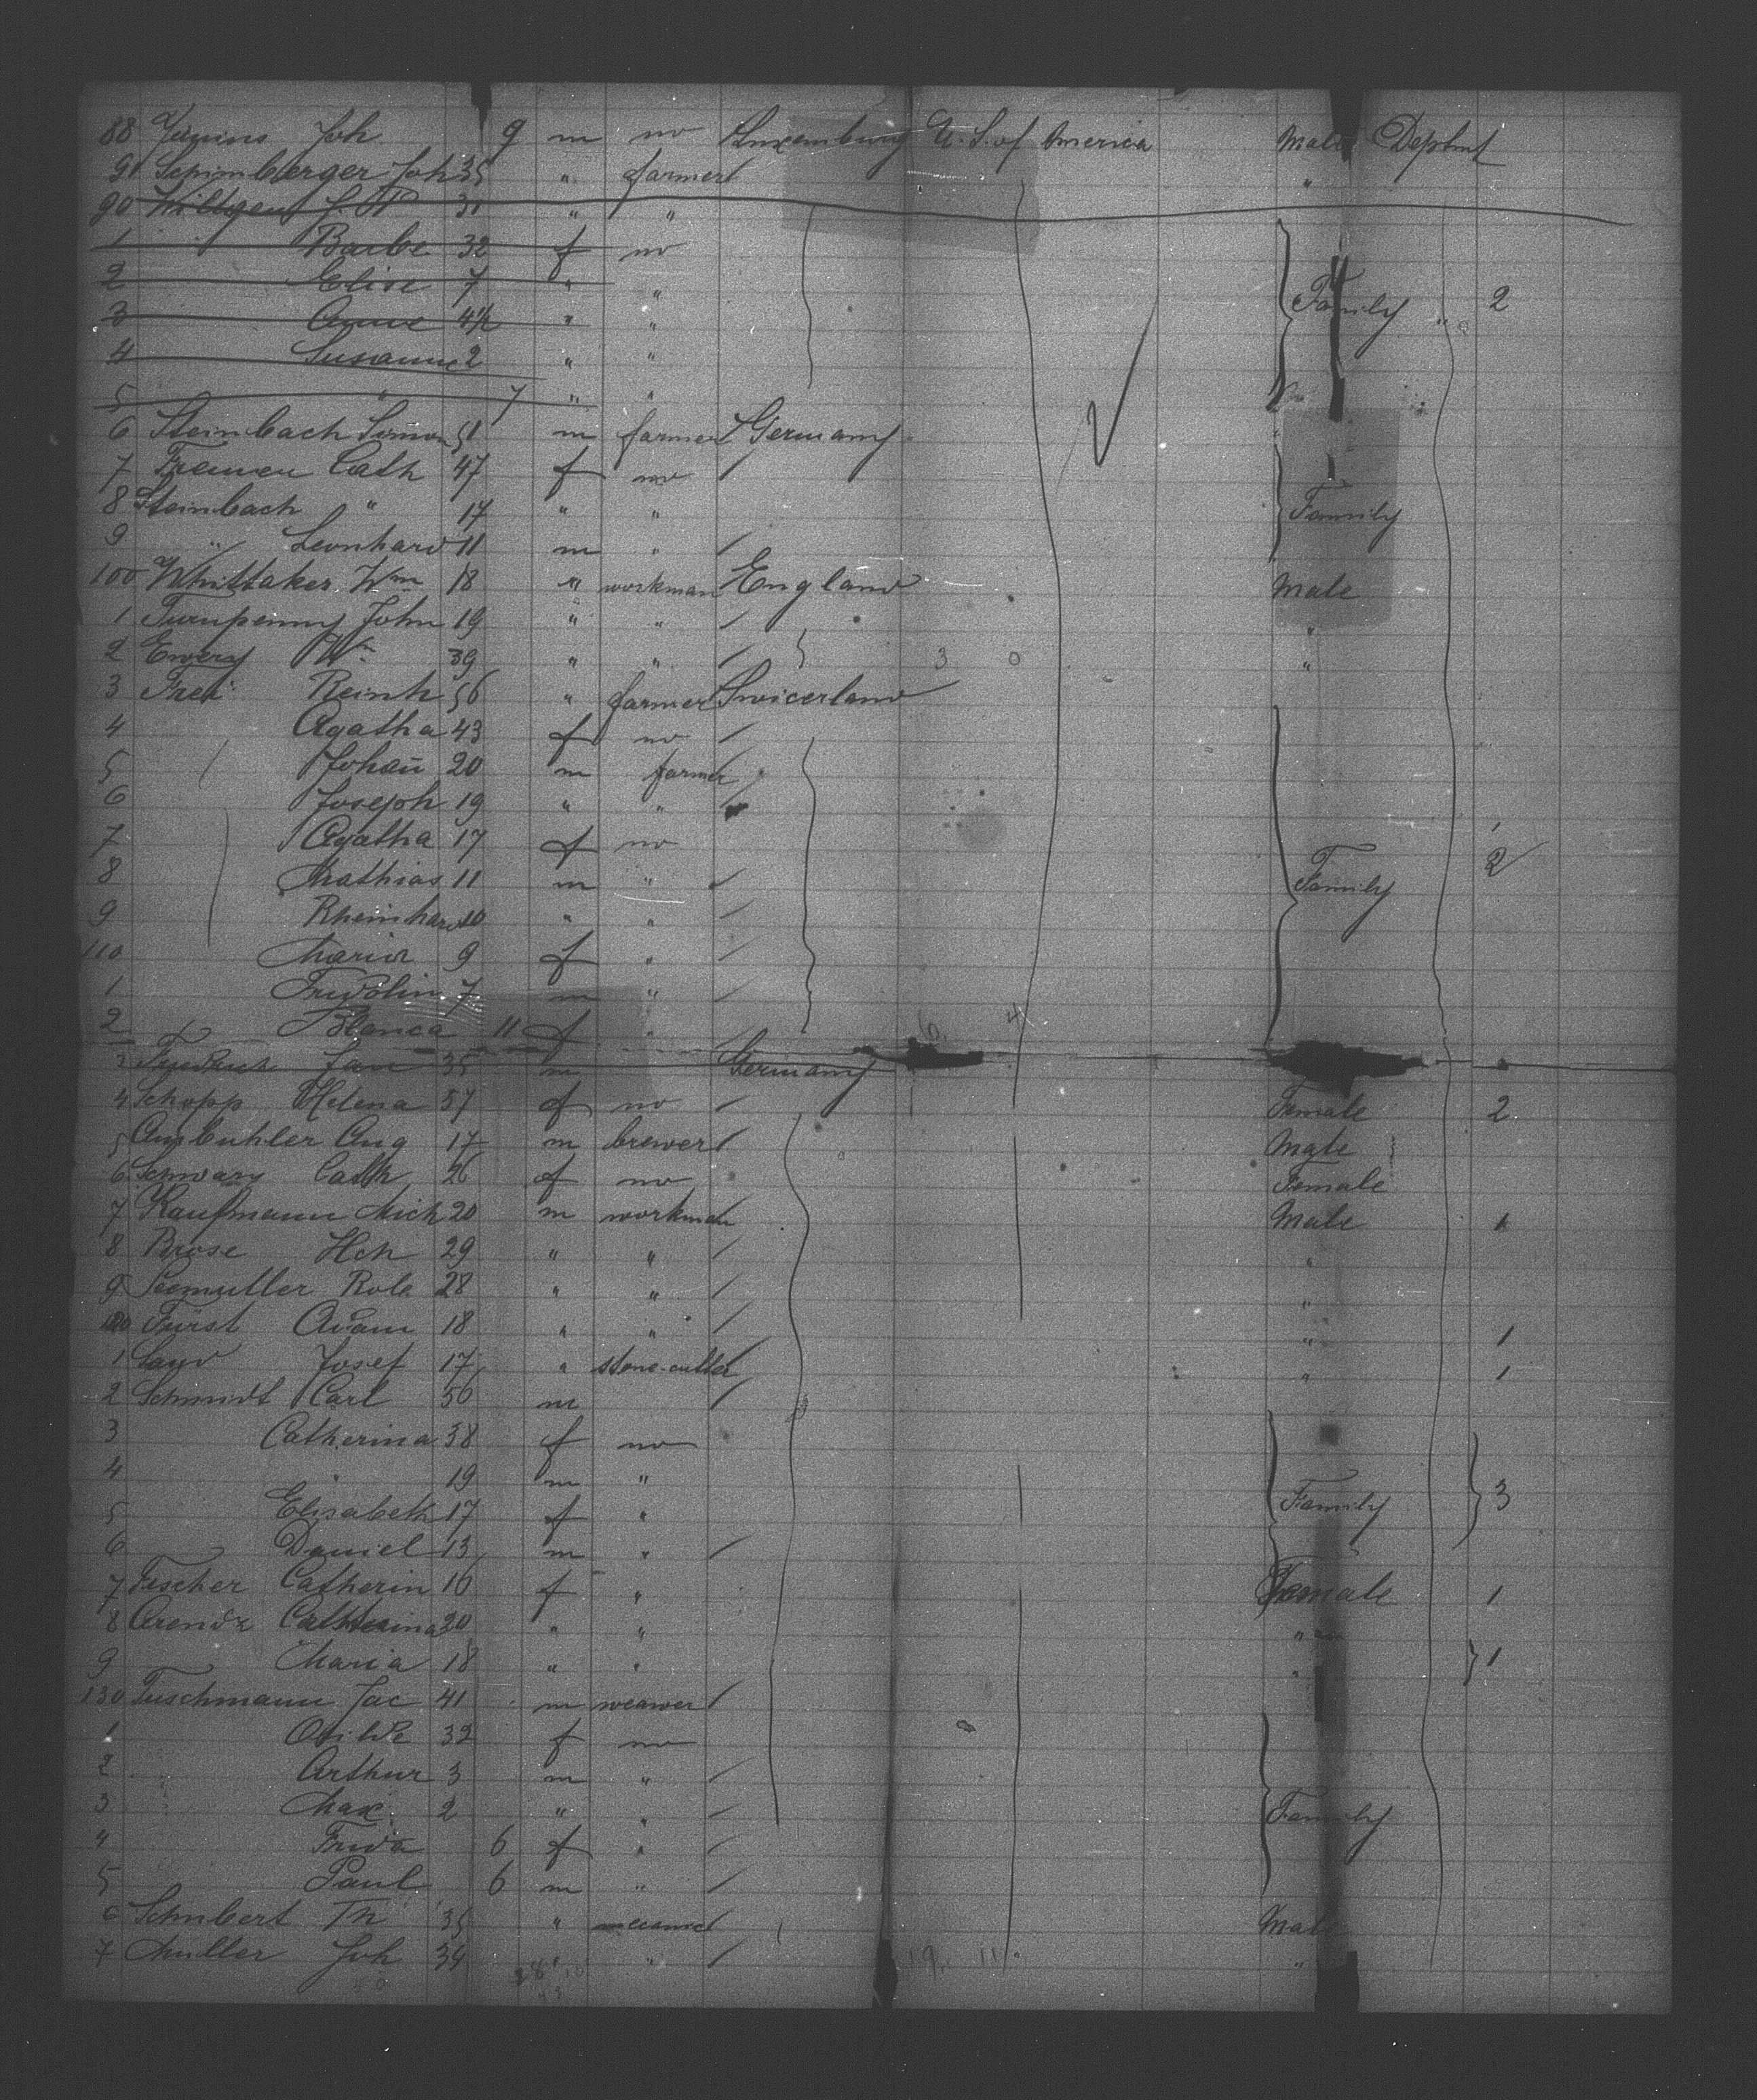 88 Joh. 9 m no Luxemburg U. S. of America Male Deptmt
Schimberger Joh 35 " farmer "
90 Wiltgen J. P 31 " "
1 Barbe 32 f no
2 Elise 7 " "
3 Anne 4½ " " Family " 2
4 Susanne 2 " "
5 " 7 " "
6 Steinbach Simon 51 m farmer Germany
7 Cath 47 f no
8 Steinbach " 17 " " Family
9 " Leonhard 11 m "
100 Whittaker Wm 18 " workman England Male
1 Turnpenny John 19 " " "
2 Emery Wm 39 " " 3 0 "
3 Frei Reinh 56 " farmer Swicerland
4 Agatha 43 f no
5 Johan̄ 20 m farmer
6 Joseph 19 " "
7 Agatha 17 f no
8 Mathias 11 m " Family 2
9 Rheinhard 10 " "
110 Maria 9 f "
1 Fridolin 7 m "
2 Blanca 11 f "
3 Jan 35 m Germany
4 Schopp Helena 57 f no Female 2
5 Ambuhler Aug 17 m brewer Male
6 Schwarz Cath 26 f no Female
7 Kaufmann Mich 20 m workman Male 1
8 Brose Hch 29 " " "
9 Seemuller Rob. 28 " " "
120 Fürst Adam 18 " " " 1
1 Josef 17 " stone-cutter " 1
2 Schmidt Carl 56 m
3 Catherina 38 f no
4 " 19 m "
5 Elisabeth 17 f " Family 3
6 Daniel 13 m "
7 Fischer Catherin 16 f " Female 1
8 Arendz Catherina 20 " " "
9 Maria 18 " " " 1
130 Tuschmann Jac 41 m weawer
1 32 f no
2 Arthur 3 m "
3 Max 2 " " Family
4 Frida 6 f "
5 Paul 6 m "
6 Schubert Th 35 " Male
7 Muller Joh 34 " "